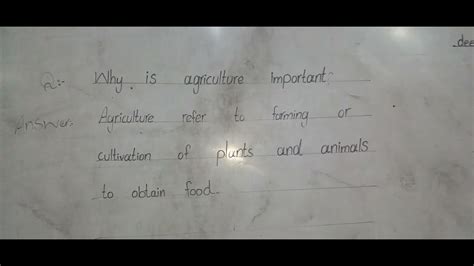 dee
Q:- Why is agriculture important?
Answer: Agriculture refer to farming or
cultivation of plants and animals
to obtain food